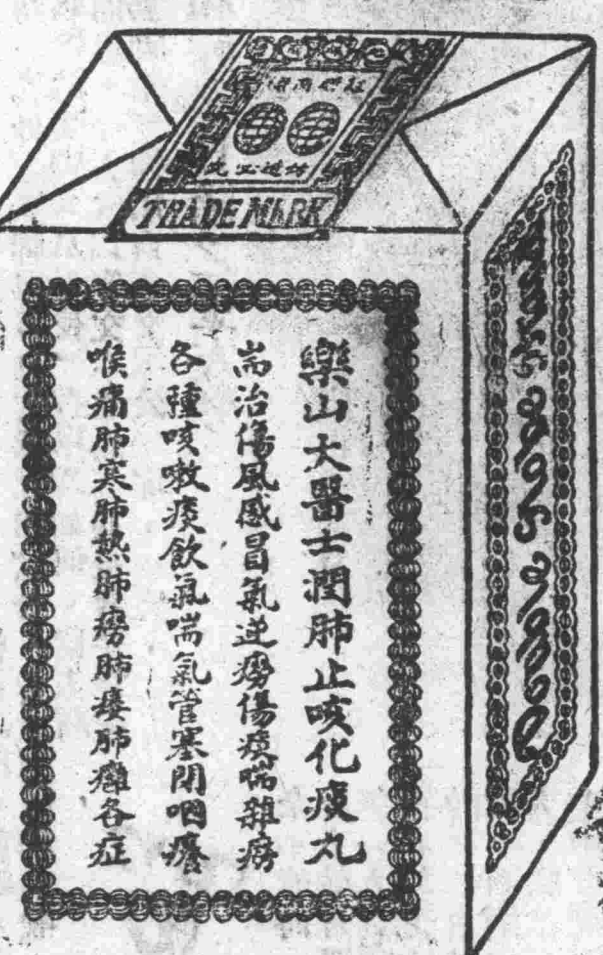 TRADE MARK
樂山大醫士潤肺止咳化痰丸
耑治傷風感冒氣逆癆傷痰喘雜癆
各種咳嗽痰飲氣喘氣管塞閉咽癢
喉痛肺寒肺熱肺癆肺痿肺癰各症